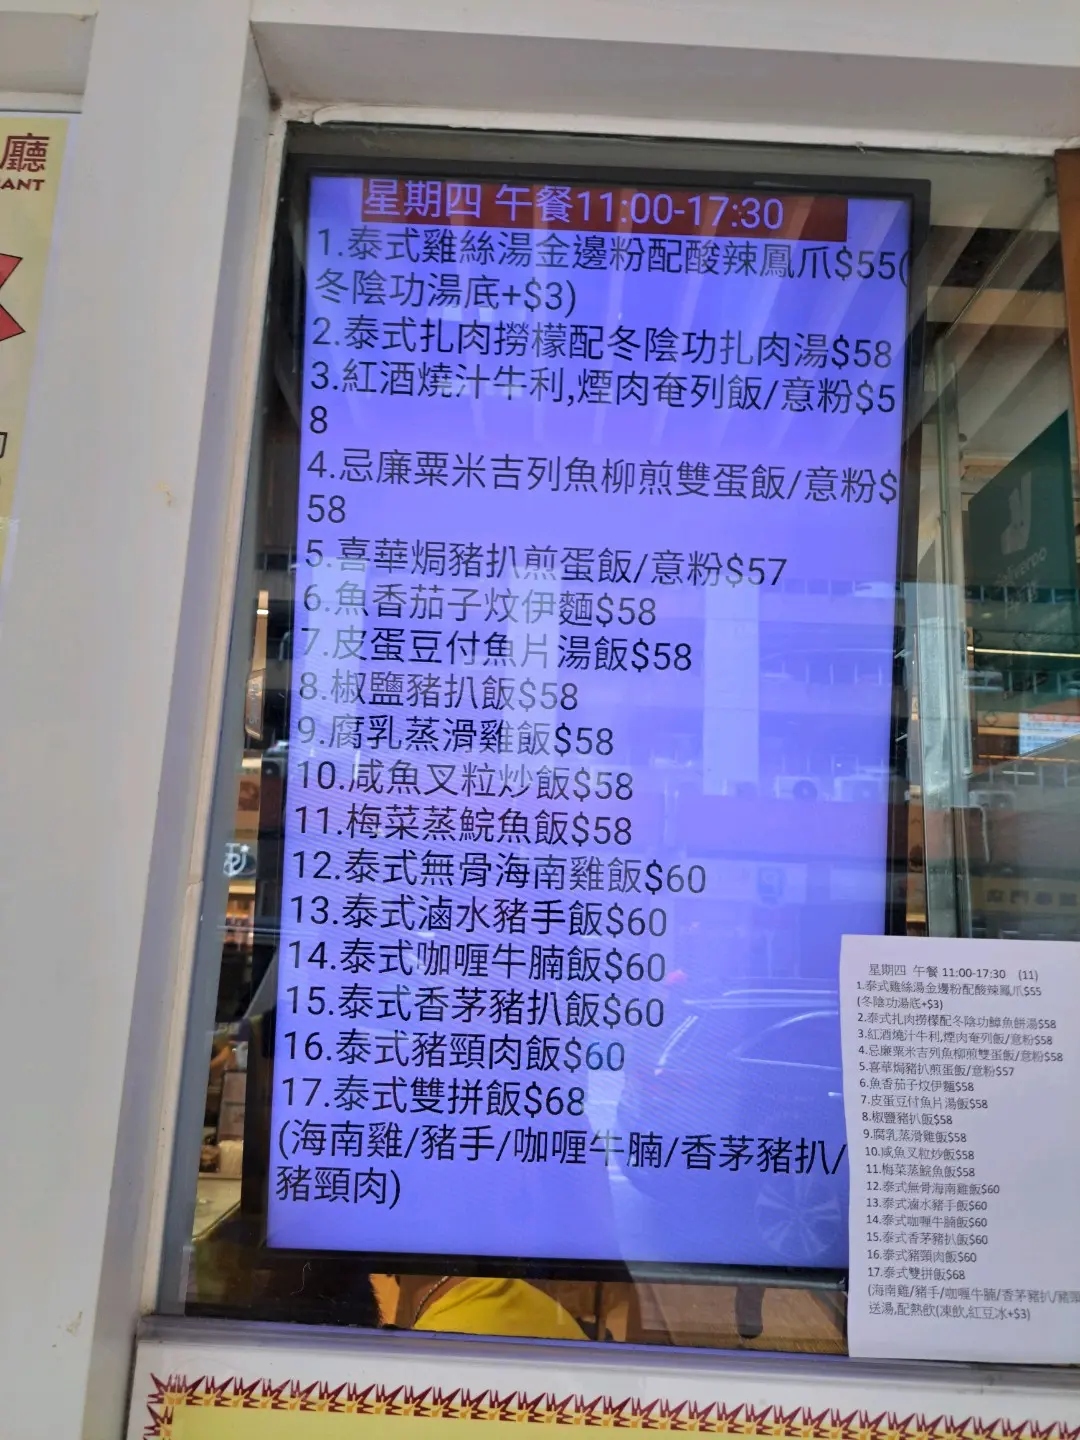 廳
ANT
星期四 午餐11:00-17:30
1.泰式雞絲湯金邊粉配酸辣鳳爪$55(
冬陰功湯底+$3)
2.泰式扎肉撈檬配冬陰功扎肉湯$58
3.紅酒燒汁牛利,煙肉奄列飯/意粉$5
8
4.忌廉粟米吉列魚柳煎雙蛋飯/意粉$
58
5.喜華焗豬扒煎蛋飯/意粉$57
6.魚香茄子炆伊麵$58
7.皮蛋豆付魚片湯飯$58
8.椒鹽豬扒飯$58
9.腐乳蒸滑雞飯$58
10.咸魚叉粒炒飯$58
11.梅菜蒸鯇魚飯$58
12.泰式無骨海南雞飯$60
13.泰式滷水豬手飯$60
14.泰式咖喱牛腩飯$60
15.泰式香茅豬扒飯$60
16.泰式豬頸肉飯$60
17.泰式雙拼飯$68
(海南雞/豬手/咖喱牛腩/香茅豬扒/
豬頸肉)
星期四 午餐 11:00-17:30 (11)
1.泰式雞絲湯金邊粉配酸辣鳳爪$55
(冬陰功湯底+$3)
2.泰式扎肉撈檬配冬陰功鯪魚餅湯$58
3.紅酒燒汁牛利,煙肉奄列飯/意粉$58
4.忌廉粟米吉列魚柳煎雙蛋飯/意粉$58
5.喜華焗豬扒煎蛋飯/意粉$57
6.魚香茄子炆伊麵$58
7.皮蛋豆付魚片湯飯$58
8.椒鹽豬扒飯$58
9.腐乳蒸滑雞飯$58
10.咸魚叉粒炒飯$58
11.梅菜蒸鯇魚飯$58
12.泰式無骨海南雞飯$60
13.泰式滷水豬手飯$60
14.泰式咖喱牛腩飯$60
15.泰式香茅豬扒飯$60
16.泰式豬頸肉飯$60
17.泰式雙拼飯$68
(海南雞/豬手/咖喱牛腩/香茅豬扒/豬頸
送湯,配熱飲(凍飲,紅豆冰+$3)